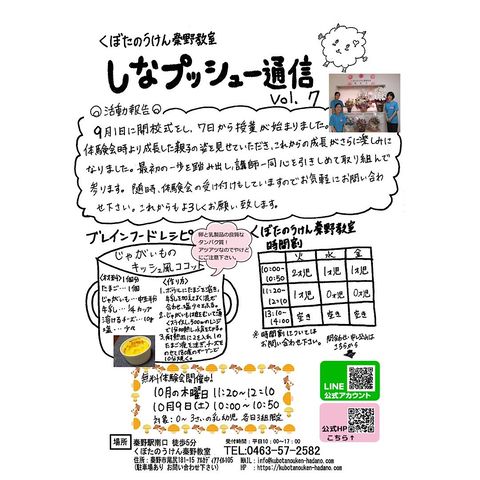 くぼたのうけん秦野教室
しなプッシュー通信
Vol. 7
活動報告
9月1日に開校式をし、7日から授業が始まりました。
体験会時より成長した親子の姿を見せていただき、これからの成長がさらに楽しみに
なりました。最初の一歩を踏み出し、講師一同心を引きしめて取り組んで
参ります。随時、体験会の受け付けもしていますのでお気軽にお問い合わ
せ下さい。これからもよろしくお願い致します。
ブレインフードレシピ
卵と乳製品の良質な
タンパク質!
アツアツなのでやけど
にご注意下さい。
じゃがいもの
キッシュ風ココット
〈材料〉1個分
たまご…1個
じゃがいも…中半分
牛乳…1/4カップ
溶けるチーズ…10g
塩…少々
〈作り方〉
1.ボウルにたまごを溶き、
牛乳を加えよく混ぜ
合わせ、塩を入れる。
2.じゃがいもは皮をむいて薄く
くぼたのうけん秦野教室
時間割
火 水 金
10:00~10:50 2才児 1才児 1才児
11:20~12:10 1才児 0才児 0才児
13:10~14:00 空き 空き 空き
※時間割については
お問い合わせ下さい。
こちらから
LINE
公式アカウント
公式HP
こちら↑
無料体験会開催中!
10月の木曜日 11:20~12:10
10月9日(土) 10:00~10:50
対象:0~3さいの乳幼児 各日3組限定
場所
秦野駅南口 徒歩5分
くぼたのうけん秦野教室
住所:秦野市尾尻181-15
(駐車場あり お問い合わせ下さい)
受付時間:平日10:00~17:00
TEL:0463-57-2582
MAIL:info@kubotanouken-hadano.com
HP :https://kubotanouken-hadano.com